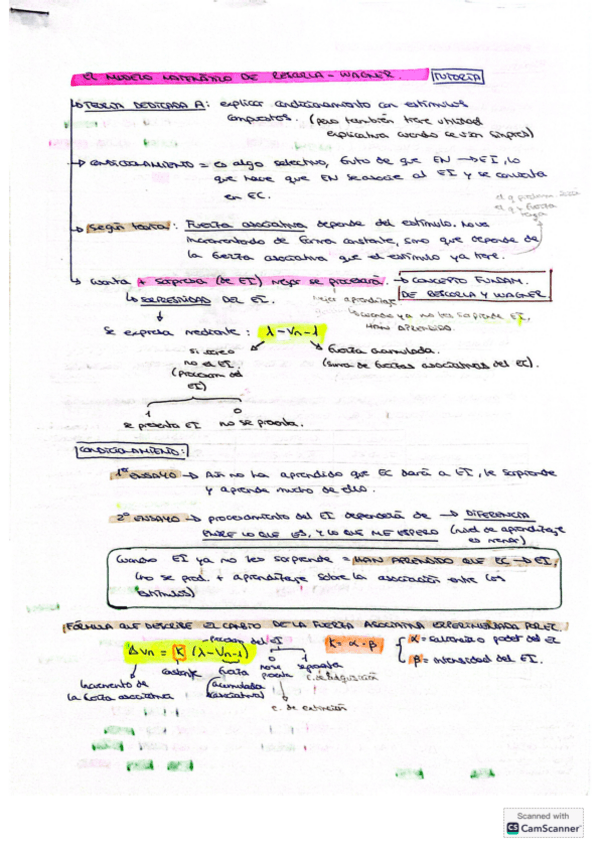 EL MODELO MATEMÁTICO DE RESCORLA-WAGNER. TUTORÍA
TEORÍA DEDICADA A: explicar condicionamiento con estímulos
compuestos. (pero también tiene utilidad
explicativa cuando se usan simples)
CONDICIONAMIENTO = es algo selectivo, fruto de que EN → EI, lo
que hace que EN se asocie al EI y se convierta
en EC.
Según teoría: Fuerza asociativa depende del estímulo. No va
incrementando de forma constante, sino que depende de
la fuerza asociativa que el estímulo ya tiene.
Cuanta + sorpresa (de EI) mejor se procesará. → CONCEPTO FUNDAM.
DE RESCORLA Y WAGNER
SORPRESIVIDAD DEL EI. mejor aprendizaje
cuando ya no les sorprende EI,
HAN APRENDIDO.
Se expresa mediante: λ - Vn-1
si acaeció
no el EI.
fuerza acumulada.
(suma de fuerzas asociativas del EC).
1 0
se presenta EI no se presenta.
CONDICIONAMIENTO:
1er ENSAYO → Aún no ha aprendido que EC dará a EI, le sorprende
y aprende mucho de ello.
2º ENSAYO → procesamiento del EI dependerá de → DIFERENCIA
ENTRE LO QUE ES, Y LO QUE ME ESPERO (nivel de aprendizaje
es menor)
Cuando EI ya no les sorprende = HAN APRENDIDO QUE EC → EI.
(no se prod. + aprendizaje sobre la asociación entre los
estímulos)
FÓRMULA QUE DESCRIBE EL CAMBIO DE LA FUERZA ASOCIATIVA EXPERIMENTADA POR EC.
ΔVn = K (λ - Vn-1) K = α · β
α = saliencia o poder del EC
β = intensidad del EI.
Incremento de
la fuerza asociativa
constante
fuerza
(acumulada
asociativa)
0 1
no se
presenta
se presenta
c. de adquisición
c. de extinción
Scanned with
CS CamScanner